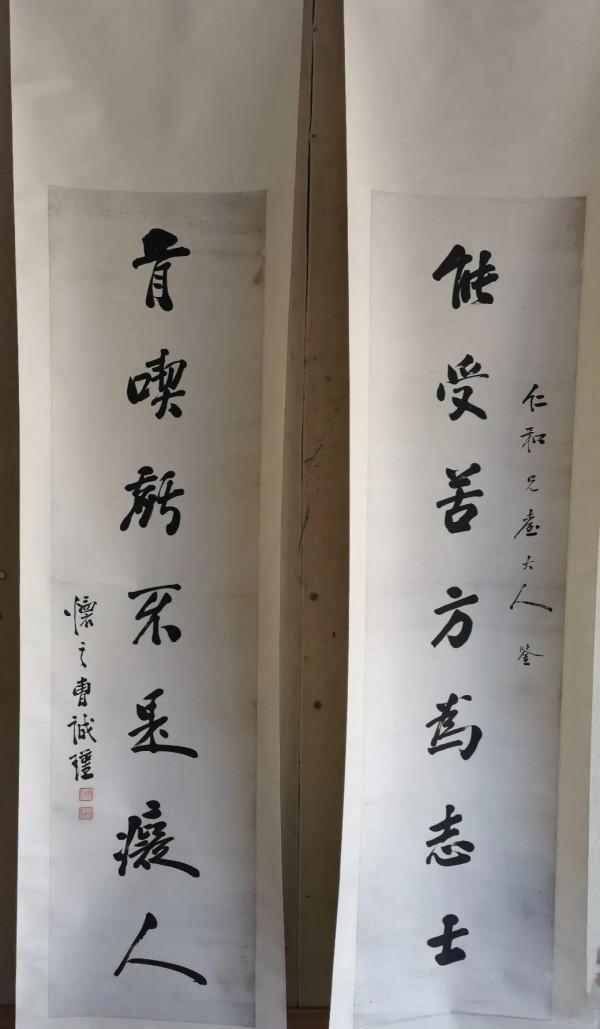 仁和兄臺大人鉴
能受苦方為志士
肯喫虧不是癡人
懷之曹誠瑾